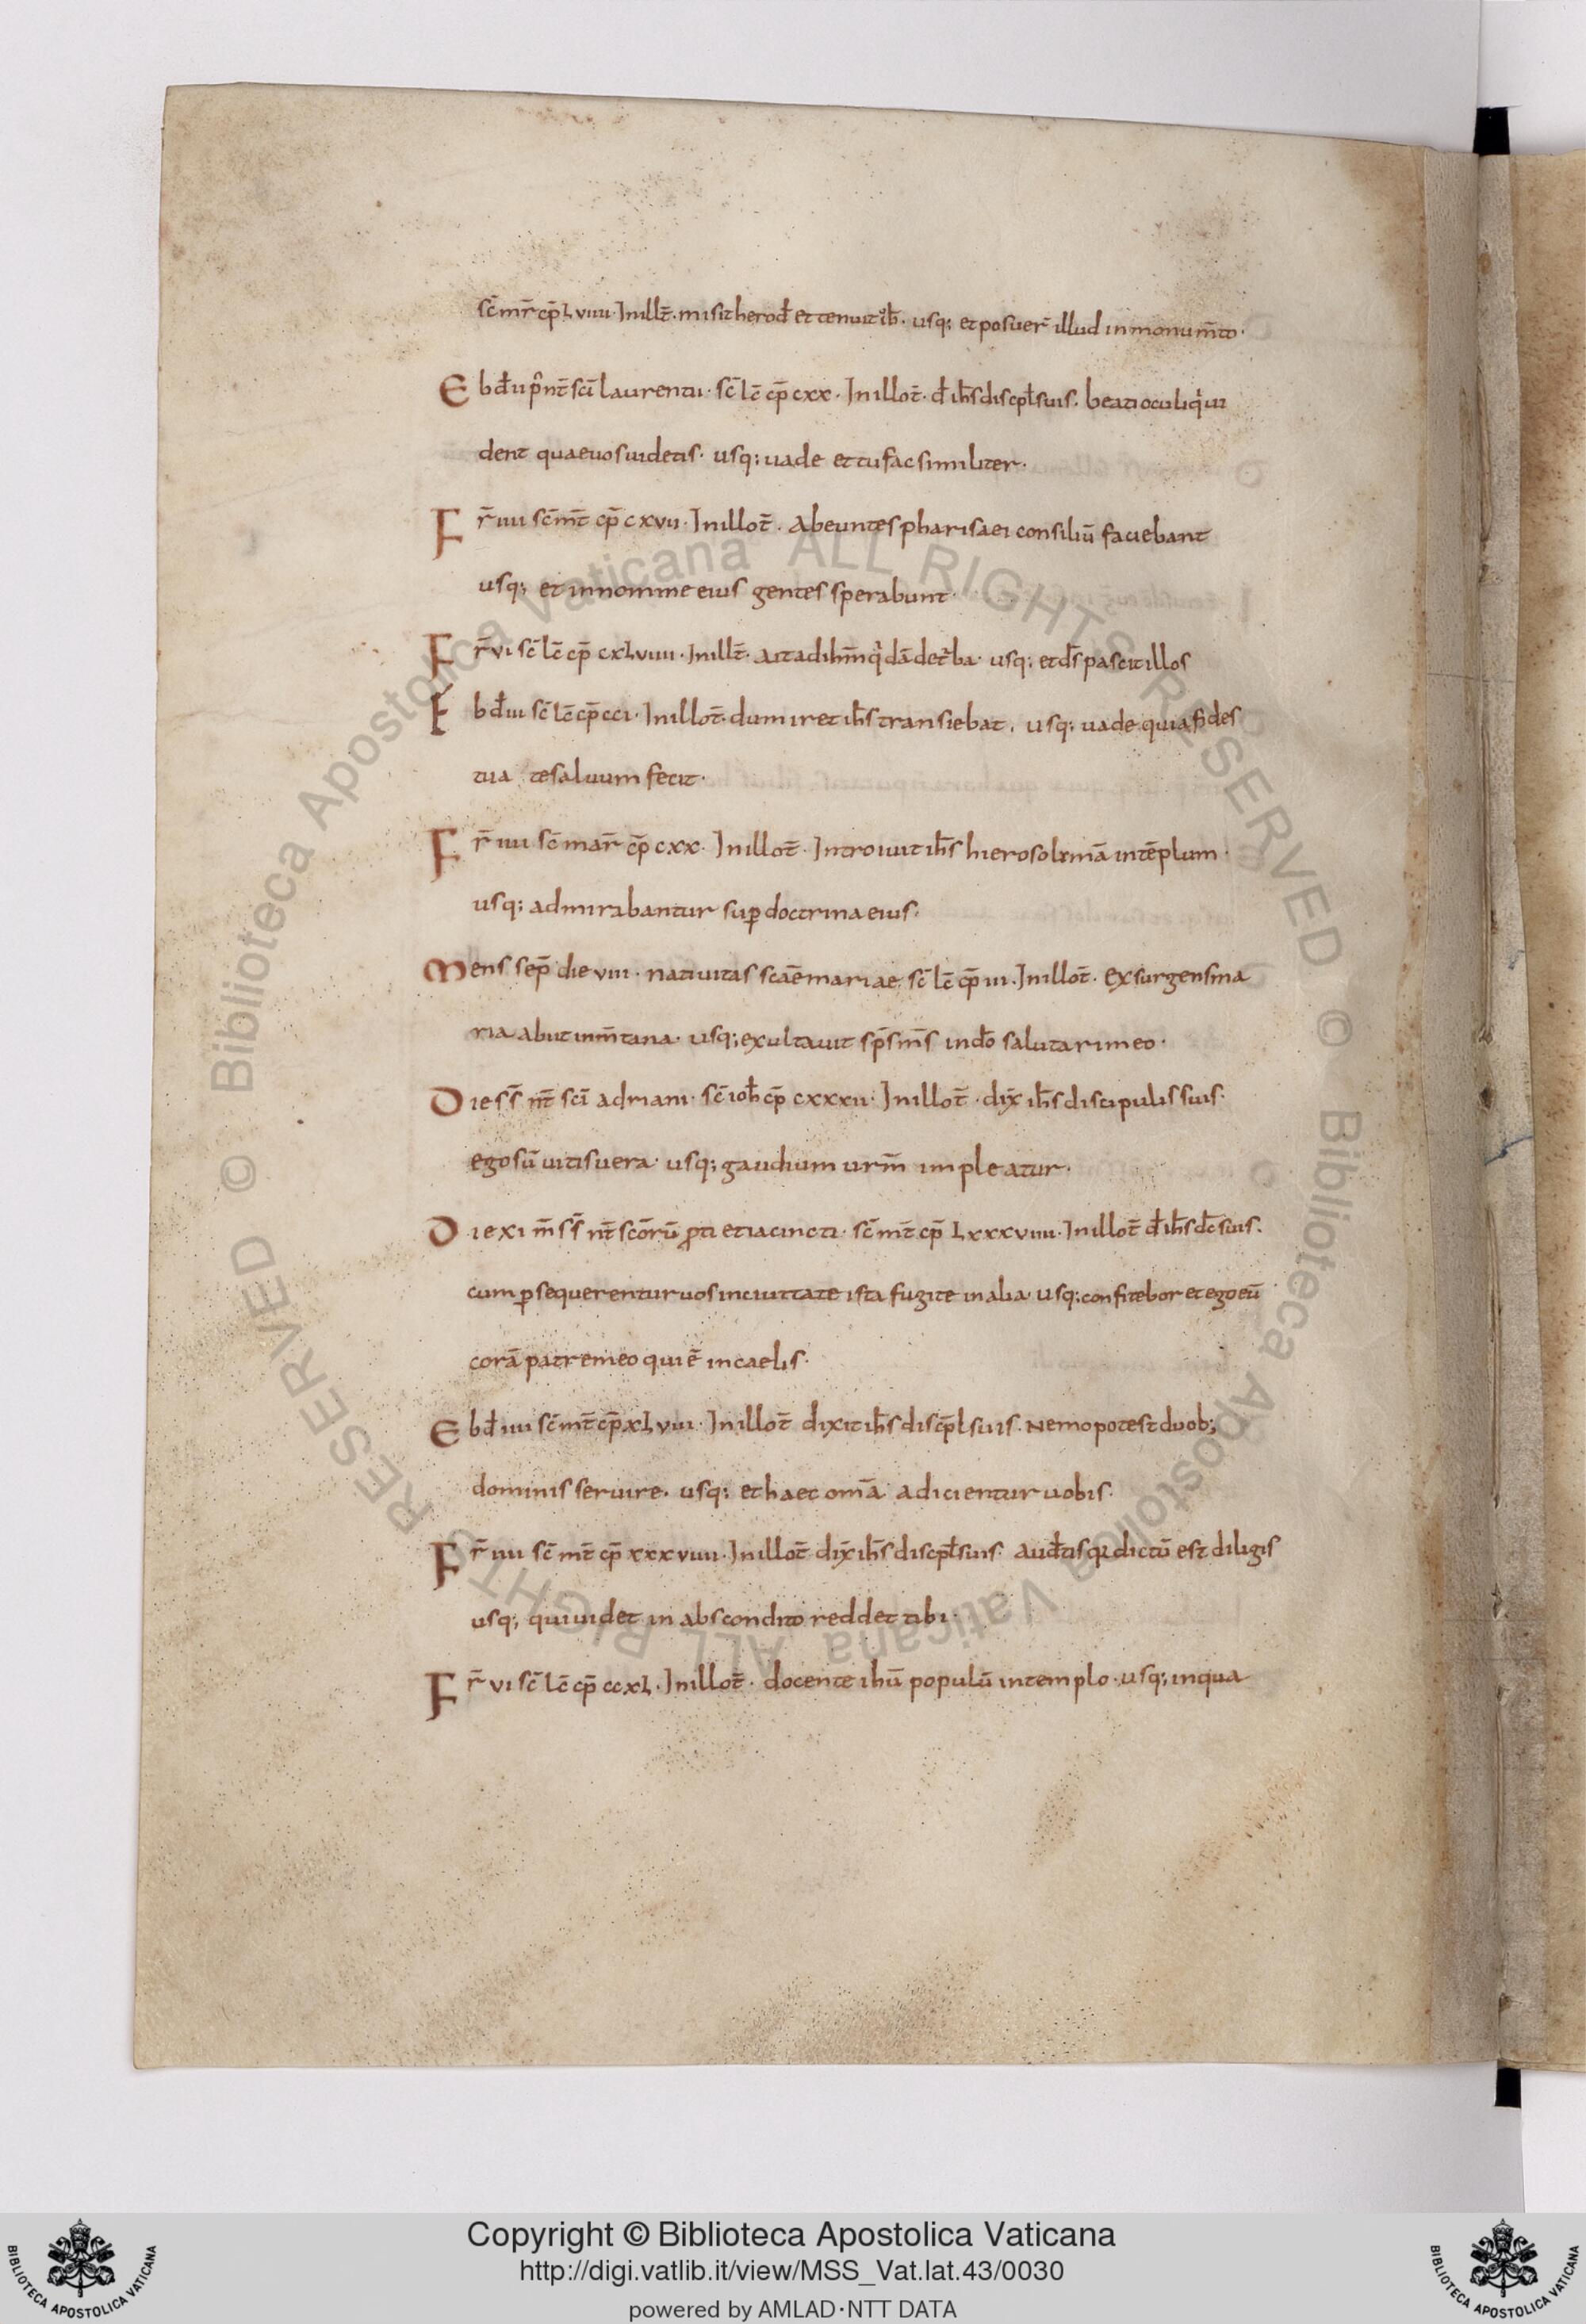 sc̄ mr̄ cp̄ Lviiii · In illt̄ · misit herod̄ et tenuit ioh̄ · usq; et posuer̄ illud in monum̄to ·
Ebd̄ ii p̄ nt̄ sc̄i laurentii · sc̄ lc̄ cp̄ cxx · In illot̄ · d̄ ih̄s discipl̄ suis · beati oculi qui ui
dent quae uos uidetis · usq; uade et tu fac similiter ·
Fr̄ iiii sc̄ mt̄ cp̄ cxvii · In illot̄ · Abeuntes pharisaei consiliū faciebant
usq; et in nomine eius gentes sperabunt ·
Fr̄ vi sc̄ lc̄ cp̄ cxLviiii · In illt̄ · ait ad ih̄m qidā de turba · usq; et ds̄ pascit illos
Ebd̄ iii sc̄ lc̄ cp̄ cci · In illot̄ · dum iret ih̄s transiebat · usq; uade quia fides
tua te saluum fecit ·
Fr̄ iiii sc̄ mar̄ cp̄ cxx · In illot̄ · Introiuit ih̄s hierosolimā in tēplum ·
usq; admirabantur sup doctrina eius ·
Mens sep̄ die viii · natiuitas scāe mariae sc̄ lc̄ cp̄ iii · In illot̄ · exsurgens ma
ria abiit in m̄tana · usq; exultauit sp̄s m̄s in dō salutari meo ·
Die s̄s̄ nt̄ sc̄i adriani · sc̄ ioh̄ cp̄ cxxxii · In illot̄ · dix̄ ih̄s discipulis suis ·
ego sū uitis uera · usq; gaudium urm̄ impleatur ·
Die xi m̄ s̄s̄ nt̄ sc̄orū proti et iacincti · sc̄ mt̄ cp̄ Lxxxviiii · In illot̄ d̄ ih̄s dc̄ suis ·
cum psequerentur uos in ciuitate ista fugite in alia · usq; confitebor et ego eū
corā patre meo qui ē in caelis ·
Ebd̄ iiii sc̄ mt̄ cp̄ xLviii · In illot̄ dixit ih̄s discp̄l suis · Nemo potest duob;
dominis seruire · usq; et haec omā adicientur uobis ·
Fr̄ iiii sc̄ mt̄ cp̄ xxxviiii · In illot̄ dix̄ ih̄s discipl̄ suis · aud̄tis qa dictū est diligis
usq; qui uidet in abscondito reddet tibi ·
Fr̄ vi sc̄ lc̄ cp̄ ccxL · In illot̄ · docente ih̄ū populū in templo · usq; in qua
Copyright © Biblioteca Apostolica Vaticana
http://digi.vatlib.it/view/MSS_Vat.lat.43/0030
powered by AMLAD·NTT DATA
BIBLIOTECA APOSTOLICA VATICANA
BIBLIOTECA APOSTOLICA VATICANA
© Biblioteca Apostolica Vaticana ALL RIGHTS RESERVED © Biblioteca Apostolica Vaticana ALL RIGHTS RESERVED